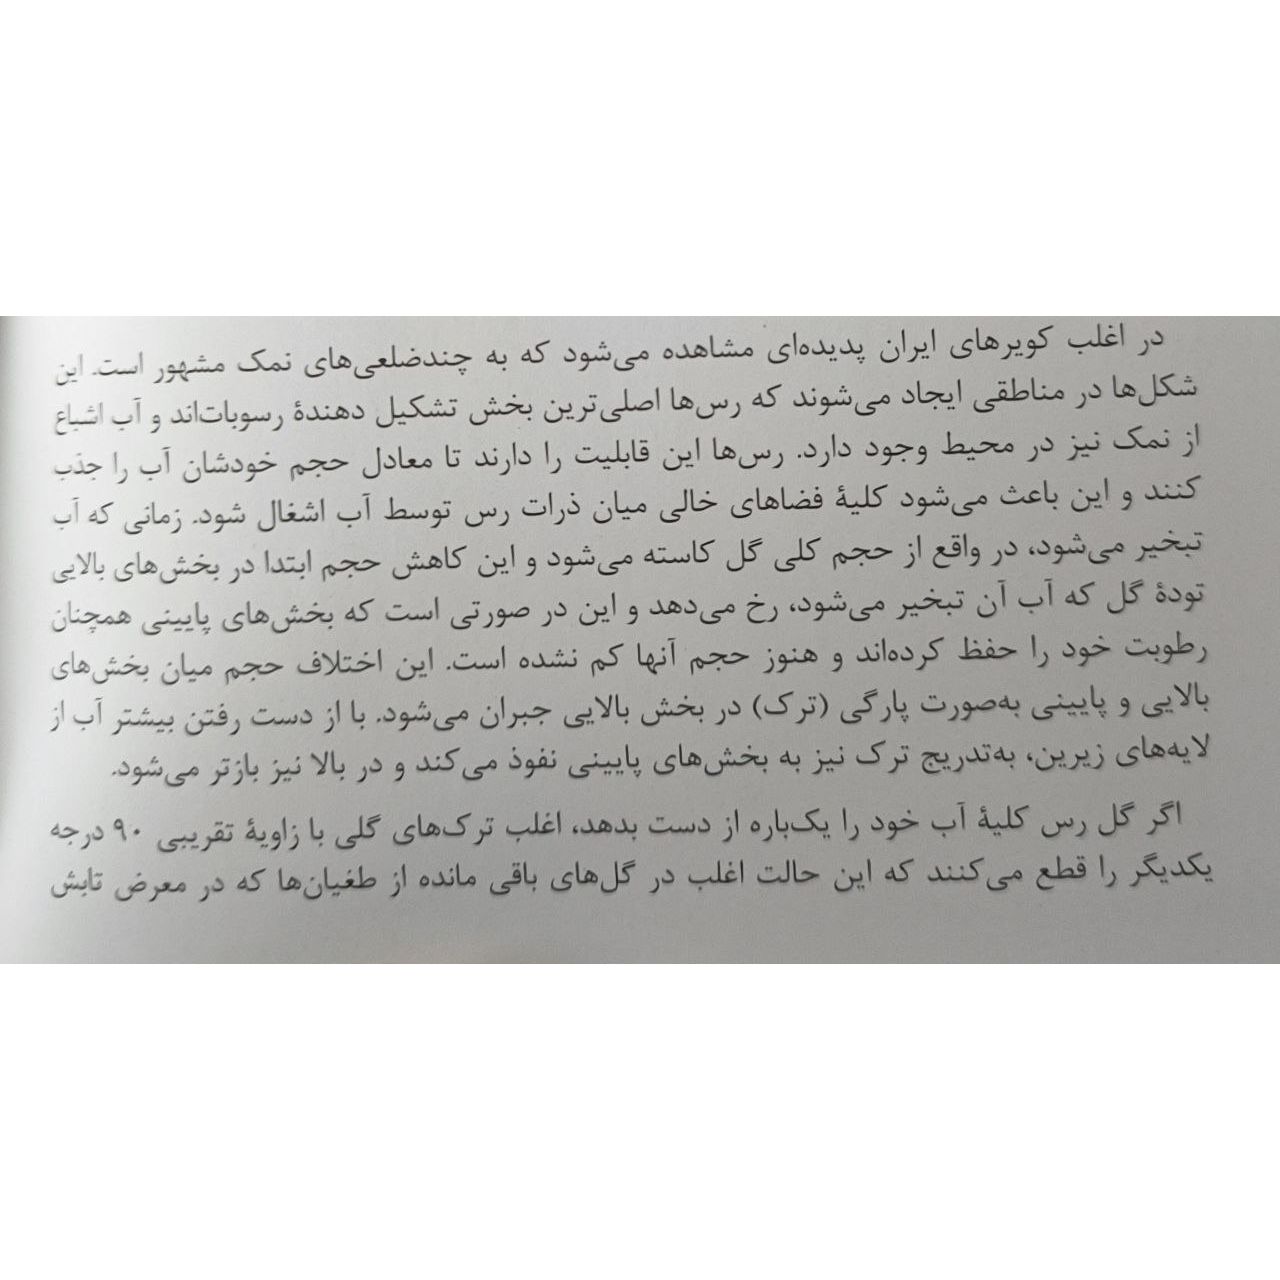 در اغلب کویرهای ایران پدیده‌ای مشاهده می‌شود که به چندضلعی‌های نمک مشهور است. این
شکل‌ها در مناطقی ایجاد می‌شوند که رس‌ها اصلی‌ترین بخش تشکیل دهندهٔ رسوبات‌اند و آب اشباع
از نمک نیز در محیط وجود دارد. رس‌ها این قابلیت را دارند تا معادل حجم خودشان آب را جذب
کنند و این باعث می‌شود کلیهٔ فضاهای خالی میان ذرات رس توسط آب اشغال شود. زمانی که آب
تبخیر می‌شود، در واقع از حجم کلی گل کاسته می‌شود و این کاهش حجم ابتدا در بخش‌های بالایی
تودهٔ گل که آب آن تبخیر می‌شود، رخ می‌دهد و این در صورتی است که بخش‌های پایینی همچنان
رطوبت خود را حفظ کرده‌اند و هنوز حجم آنها کم نشده است. این اختلاف حجم میان بخش‌های
بالایی و پایینی به‌صورت پارگی (ترک) در بخش بالایی جبران می‌شود. با از دست رفتن بیشتر آب از
لایه‌های زیرین، به‌تدریج ترک نیز به بخش‌های پایینی نفوذ می‌کند و در بالا نیز بازتر می‌شود.
اگر گل رس کلیهٔ آب خود را یک‌باره از دست بدهد، اغلب ترک‌های گلی با زاویهٔ تقریبی ۹۰ درجه
یکدیگر را قطع می‌کنند که این حالت اغلب در گل‌های باقی مانده از طغیان‌ها که در معرض تابش